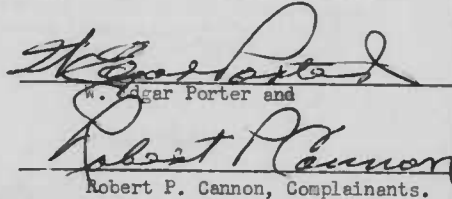 W. Edgar Porter
W. Edgar Porter and
Robert P. Cannon
Robert P. Cannon, Complainants.